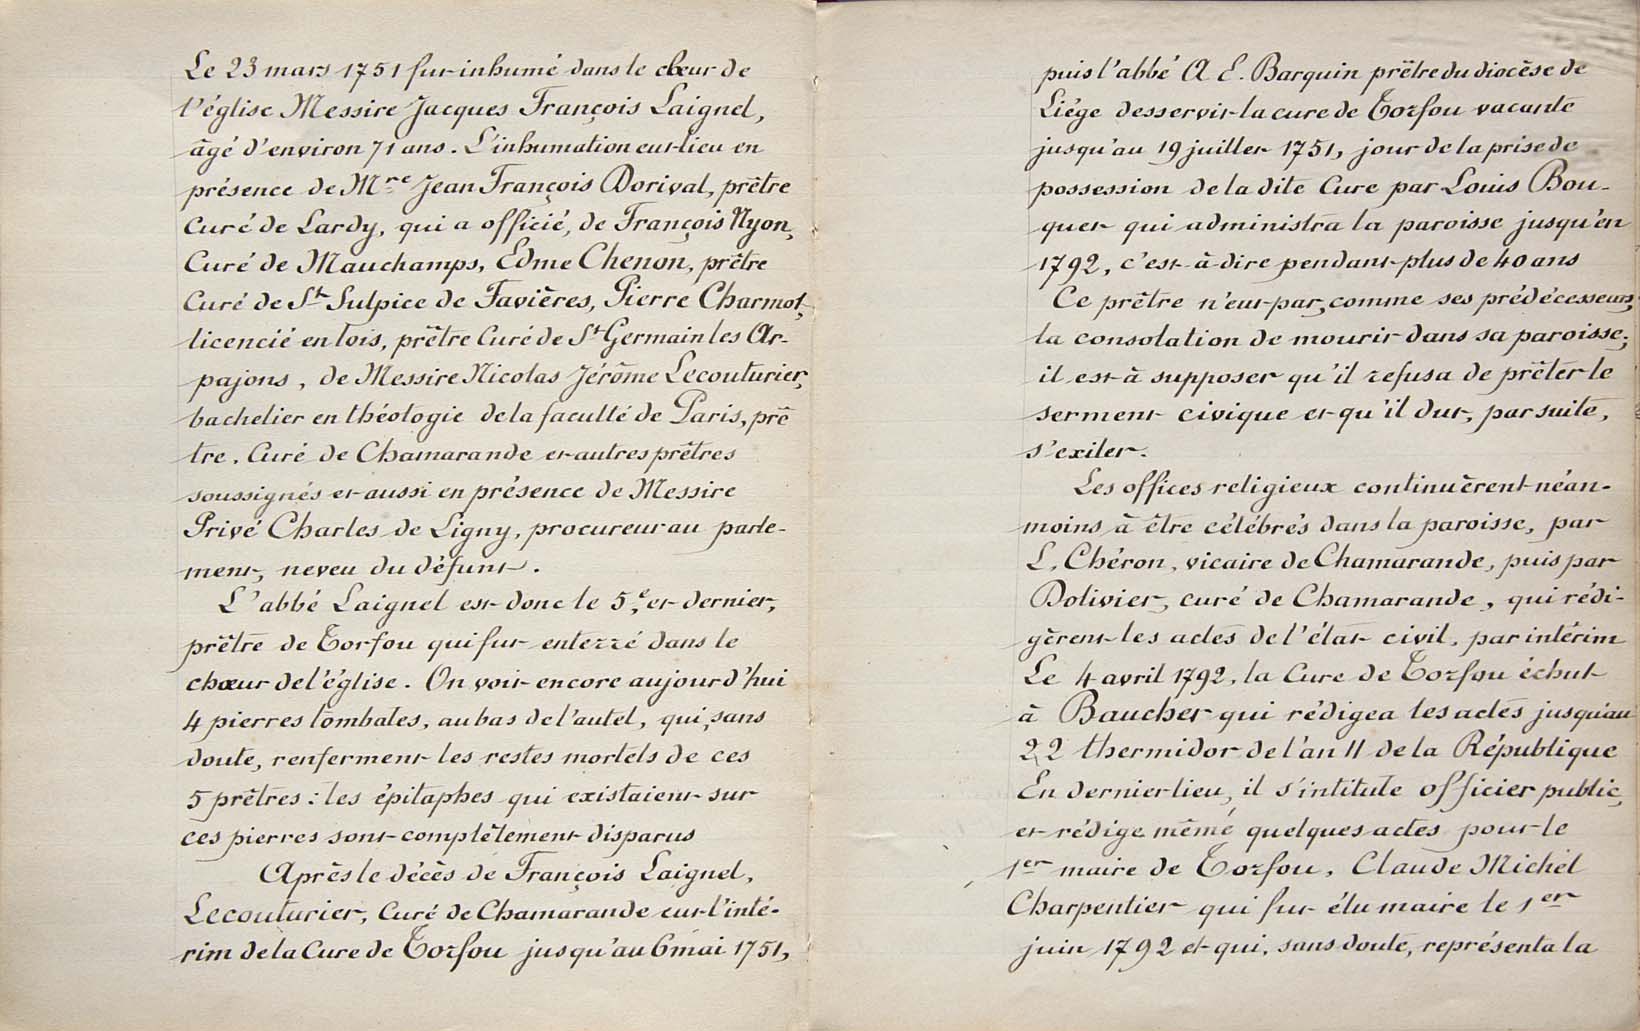 Le 23 mars 1751 fut inhumé dans le chœur de
l'église Messire Jacques François Laignel,
âgé d'environ 71 ans. L'inhumation eut lieu en
présence de Mre Jean François Dorival, prêtre
Curé de Lardy, qui a officié, de François Nyon,
Curé de Mauchamps, Edme Chenon, prêtre
Curé de St Sulpice de Favières, Pierre Charmot,
licencié en lois, prêtre Curé de St Germain les Ar-
pajons, de Messire Nicolas Jérôme Lecouturier,
bachelier en théologie de la faculté de Paris, prê
tre, Curé de Chamarande et autres prêtres
soussignés et aussi en présence de Messire
Privé Charles de Ligny, procureur au parle-
ment, neveu du défunt.
L'abbé Laignel est donc le 5e, et dernier,
prêtre de Torfou qui fut enterré dans le
chœur de l'église. On voit encore aujourd'hui
4 pierres tombales, au bas de l'autel, qui, sans
doute, renferment les restes mortels de ces
5 prêtres : les épitaphes qui existaient sur
ces pierres sont complètement disparus
Après le décès de François Laignel,
Lecouturier, Curé de Chamarande eut l'inté-
rim de la Cure de Torfou jusqu'au 6 mai 1751,
puis l'abbé A E. Barquin prêtre du diocèse de
Liége desservit la cure de Torfou vacante
jusqu'au 19 juillet 1751, jour de la prise de
possession de la dite Cure par Louis Bou-
quet qui administra la paroisse jusqu'en
1792, c'est-à-dire pendant plus de 40 ans
Ce prêtre n'eut pas, comme ses prédécesseurs,
la consolation de mourir dans sa paroisse;
il est à supposer qu'il refusa de prêter le
serment civique et qu'il dut, par suite,
s'exiler.
Les offices religieux continuèrent néan-
moins à être célébrés dans la paroisse, par
L. Chéron, vicaire de Chamarande, puis par
Dolivier, curé de Chamarande, qui rédi-
gèrent les actes de l'état civil, par intérim
Le 4 avril 1792, la Cure de Torfou échut
à Baucher qui rédigea les actes jusqu'au
22 thermidor de l'an II de la République
En dernier lieu, il s'intitule officier public,
et rédige même quelques actes pour le
1er maire de Torfou, Claude Michel
Charpentier qui fut élu maire le 1er
juin 1792 et qui, sans doute, représenta la